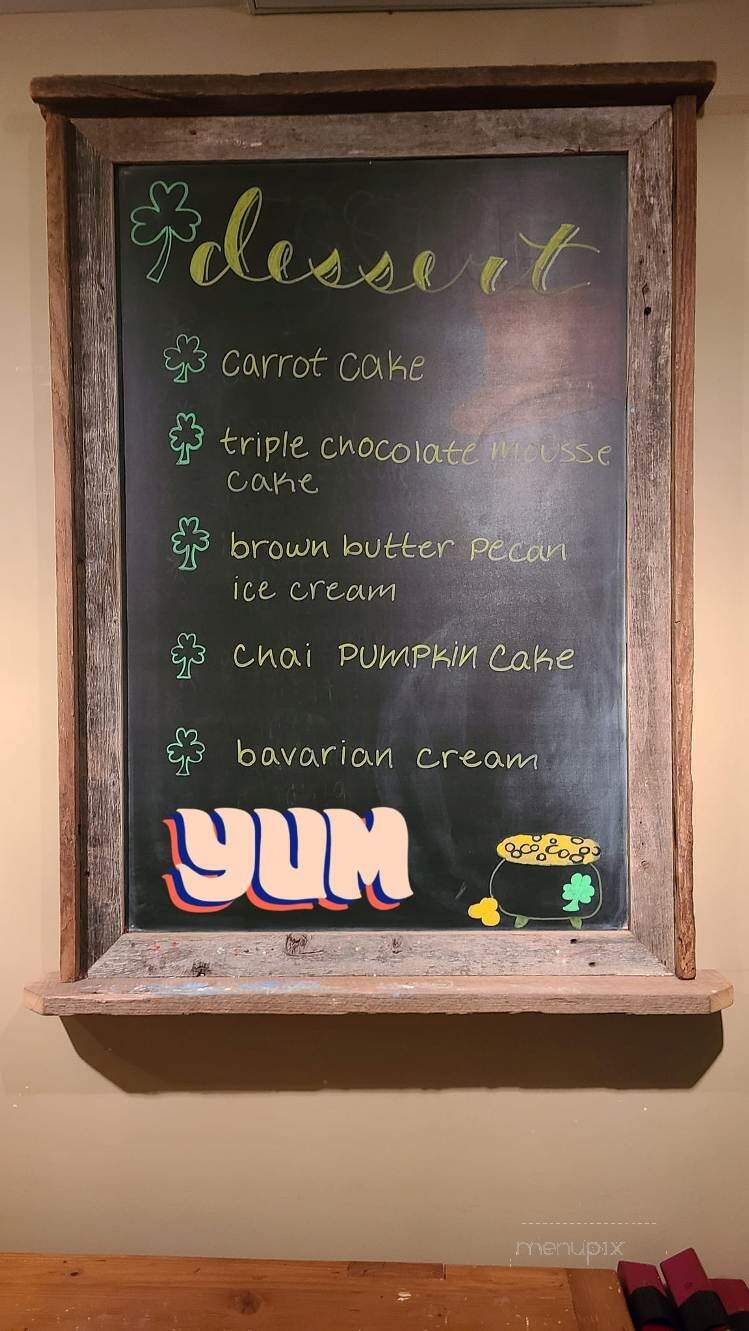 dessert
carrot cake
triple chocolate mousse
cake
brown butter pecan
ice cream
Chai PUMPKIN Cake
bavarian cream
YUM
menupix